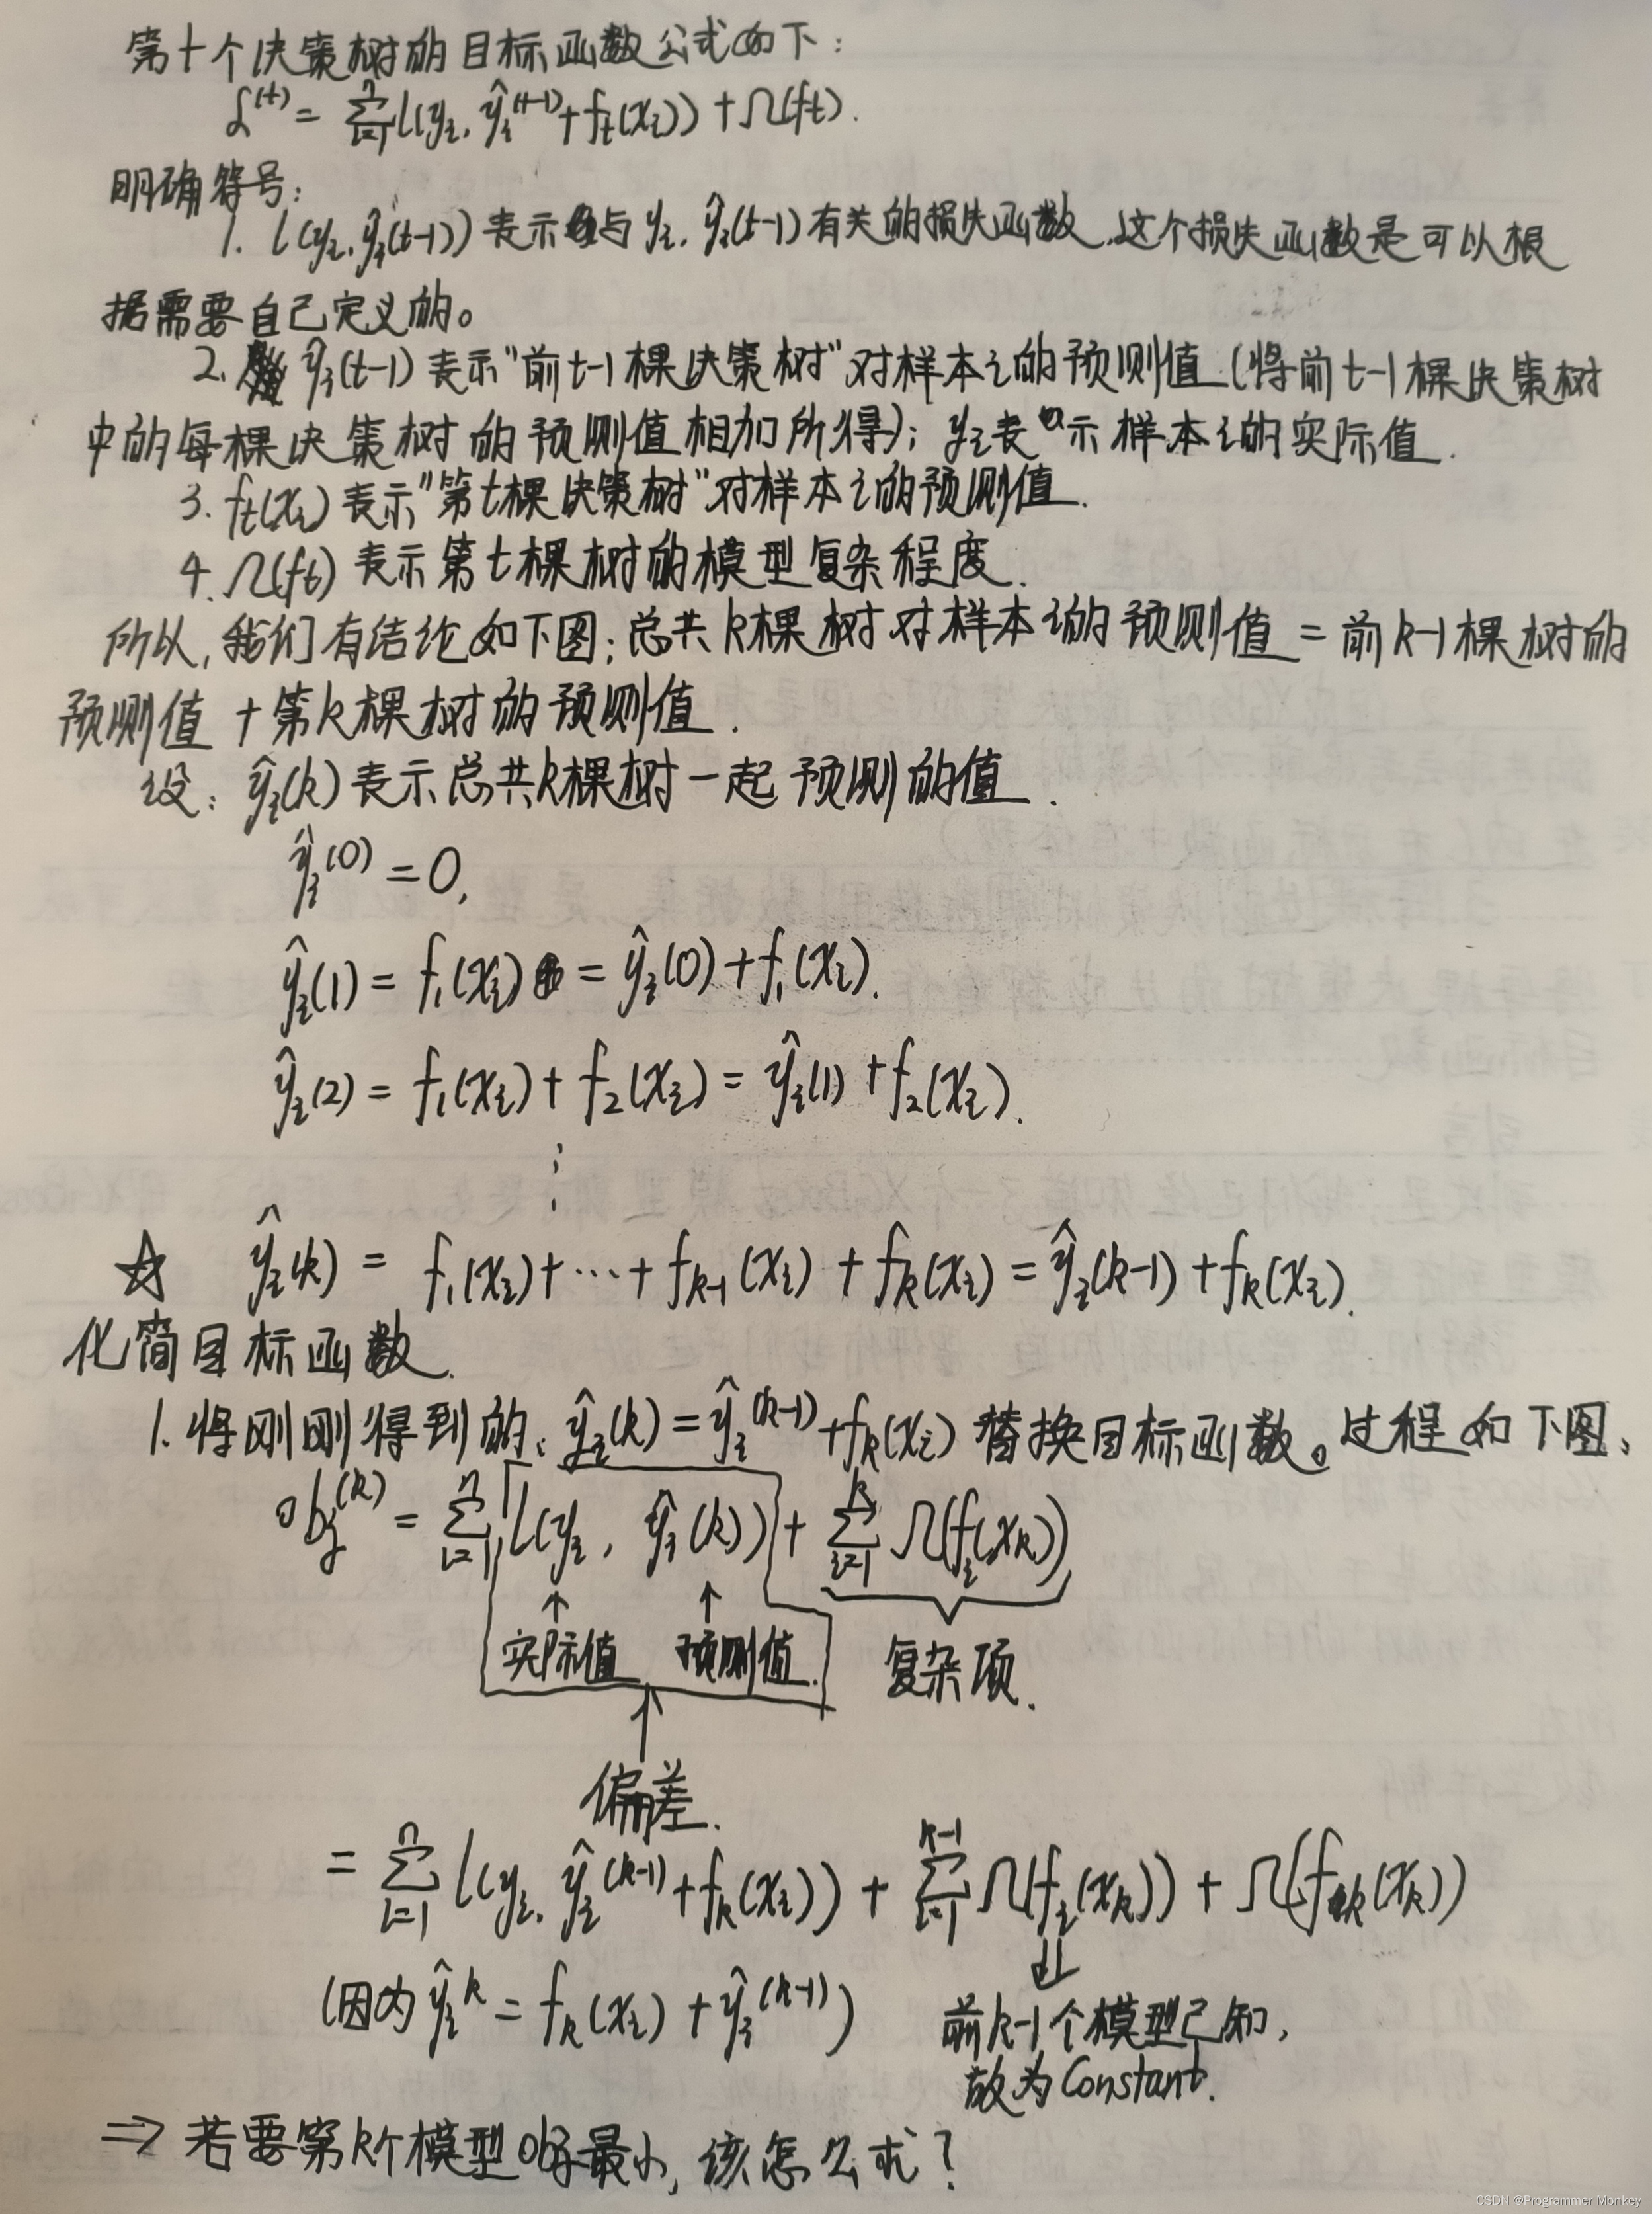 第十个决策树的目标函数公式如下：
L^(t) = Σ_{i=1}^{n} l(y_i, ŷ_i^(t-1) + f_t(x_i)) + Ω(f_t).
明确符号：
1. l(y_i, ŷ_i(t-1)) 表示与 y_i, ŷ_i(t-1) 有关的损失函数,这个损失函数是可以根
据需要自己定义的。
2. ŷ_i(t-1) 表示"前t-1棵决策树"对样本i的预测值 (将前t-1棵决策树
中的每棵决策树的预测值相加所得); y_i表示样本i的实际值.
3. f_t(x_i) 表示"第t棵决策树"对样本i的预测值.
4. Ω(f_t) 表示第t棵树的模型复杂程度.
所以,我们有结论如下图:总共k棵树对样本i的预测值 = 前k-1棵树的
预测值 + 第k棵树的预测值.
设: ŷ_i(k) 表示总共k棵树一起预测的值.
ŷ_i^(0) = 0,
ŷ_i(1) = f_1(x_i) = ŷ_i(0) + f_1(x_i).
ŷ_i(2) = f_1(x_i) + f_2(x_i) = ŷ_i(1) + f_2(x_i).
⋮
☆ ŷ_i(k) = f_1(x_i) + ··· + f_{k-1}(x_i) + f_k(x_i) = ŷ_i(k-1) + f_k(x_i).
化简目标函数.
1. 将刚刚得到的、ŷ_i(k) = ŷ_i^(k-1) + f_k(x_i) 替换目标函数。过程如下图、
obj^(k) = Σ_{i=1}^{n} l(y_i, ŷ_i(k)) + Σ_{i=1}^{k} Ω(f_i(x_k))
↑ ↑
实际值 预测值. 复杂项.
↑
偏差.
= Σ_{i=1}^{n} l(y_i, ŷ_i^(k-1) + f_k(x_i)) + Σ_{i=1}^{k-1} Ω(f_i(x_k)) + Ω(f_k(x_k))
(因为 ŷ_i^k = f_k(x_i) + ŷ_i^(k-1)) ⇓
前k-1个模型已知,
故为Constant.
⇒ 若要第k个模型obj最小, 该怎么求?
CSDN @Programmer Monkey